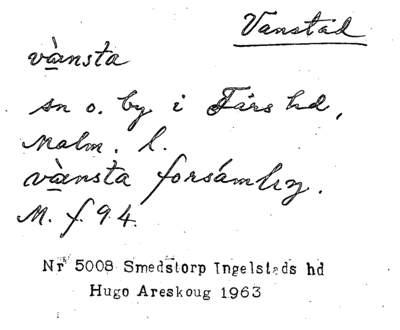 Vanstad
vànsta
sn o. by i Färs hd,
Malm. l.
vànsta forsámliŋ.
M. f. 94.
Nr 5008 Smedstorp Ingelstads hd
Hugo Areskoug 1963